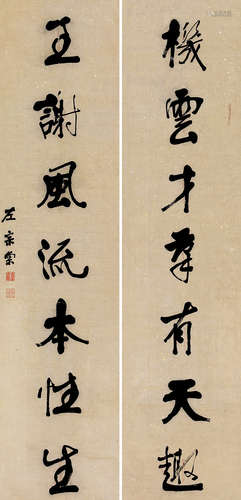 機雲才有天趣
王謝風流本性生
左宗棠